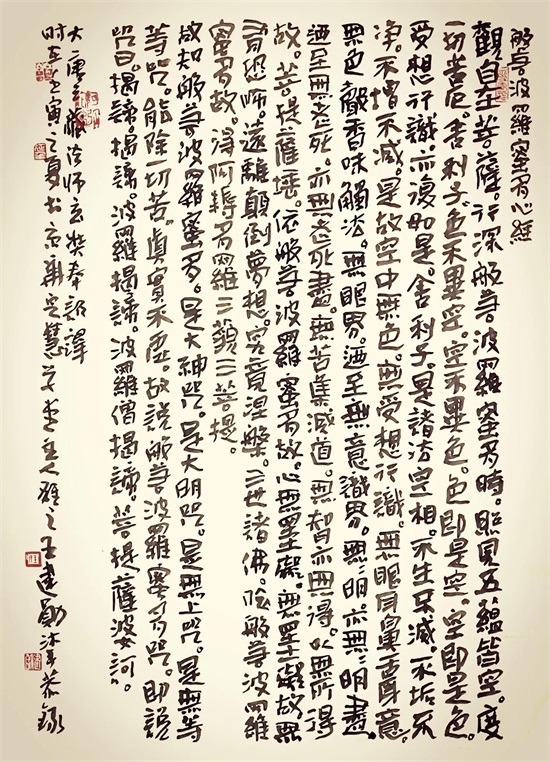 般若波羅蜜多心經
觀自在菩薩。行深般若波羅蜜多時。照見五蘊皆空。度
一切苦厄。舍利子。色不異空。空不異色。色即是空。空即是色。
受想行識。亦復如是。舍利子。是諸法空相。不生不滅。不垢不
淨。不增不減。是故空中無色。無受想行識。無眼耳鼻舌身意。
無色聲香味觸法。無眼界。迺至無意識界。無〻明亦無〻明盡。
迺至無老死。亦無老死盡。無苦集滅道。無智亦無得。以無所得
故。菩提薩埵。依般若波羅蜜多故。心無罣礙。無罣礙故。無
有恐怖。遠離顛倒夢想。究竟涅槃。三世諸佛。依般若波羅
蜜多故。得阿耨多羅三藐三菩提。
故知般若波羅蜜多。是大神咒。是大明咒。是無上咒。是無等
等咒。能除一切苦。真實不虛。故說般若波羅蜜多咒。即說
咒曰。揭諦。揭諦。波羅揭諦。波羅僧揭諦。菩提薩婆訶。
大唐三藏法師玄奘奉詔譯
时在壬寅之夏书京華定慧主人王建勛沐手恭録